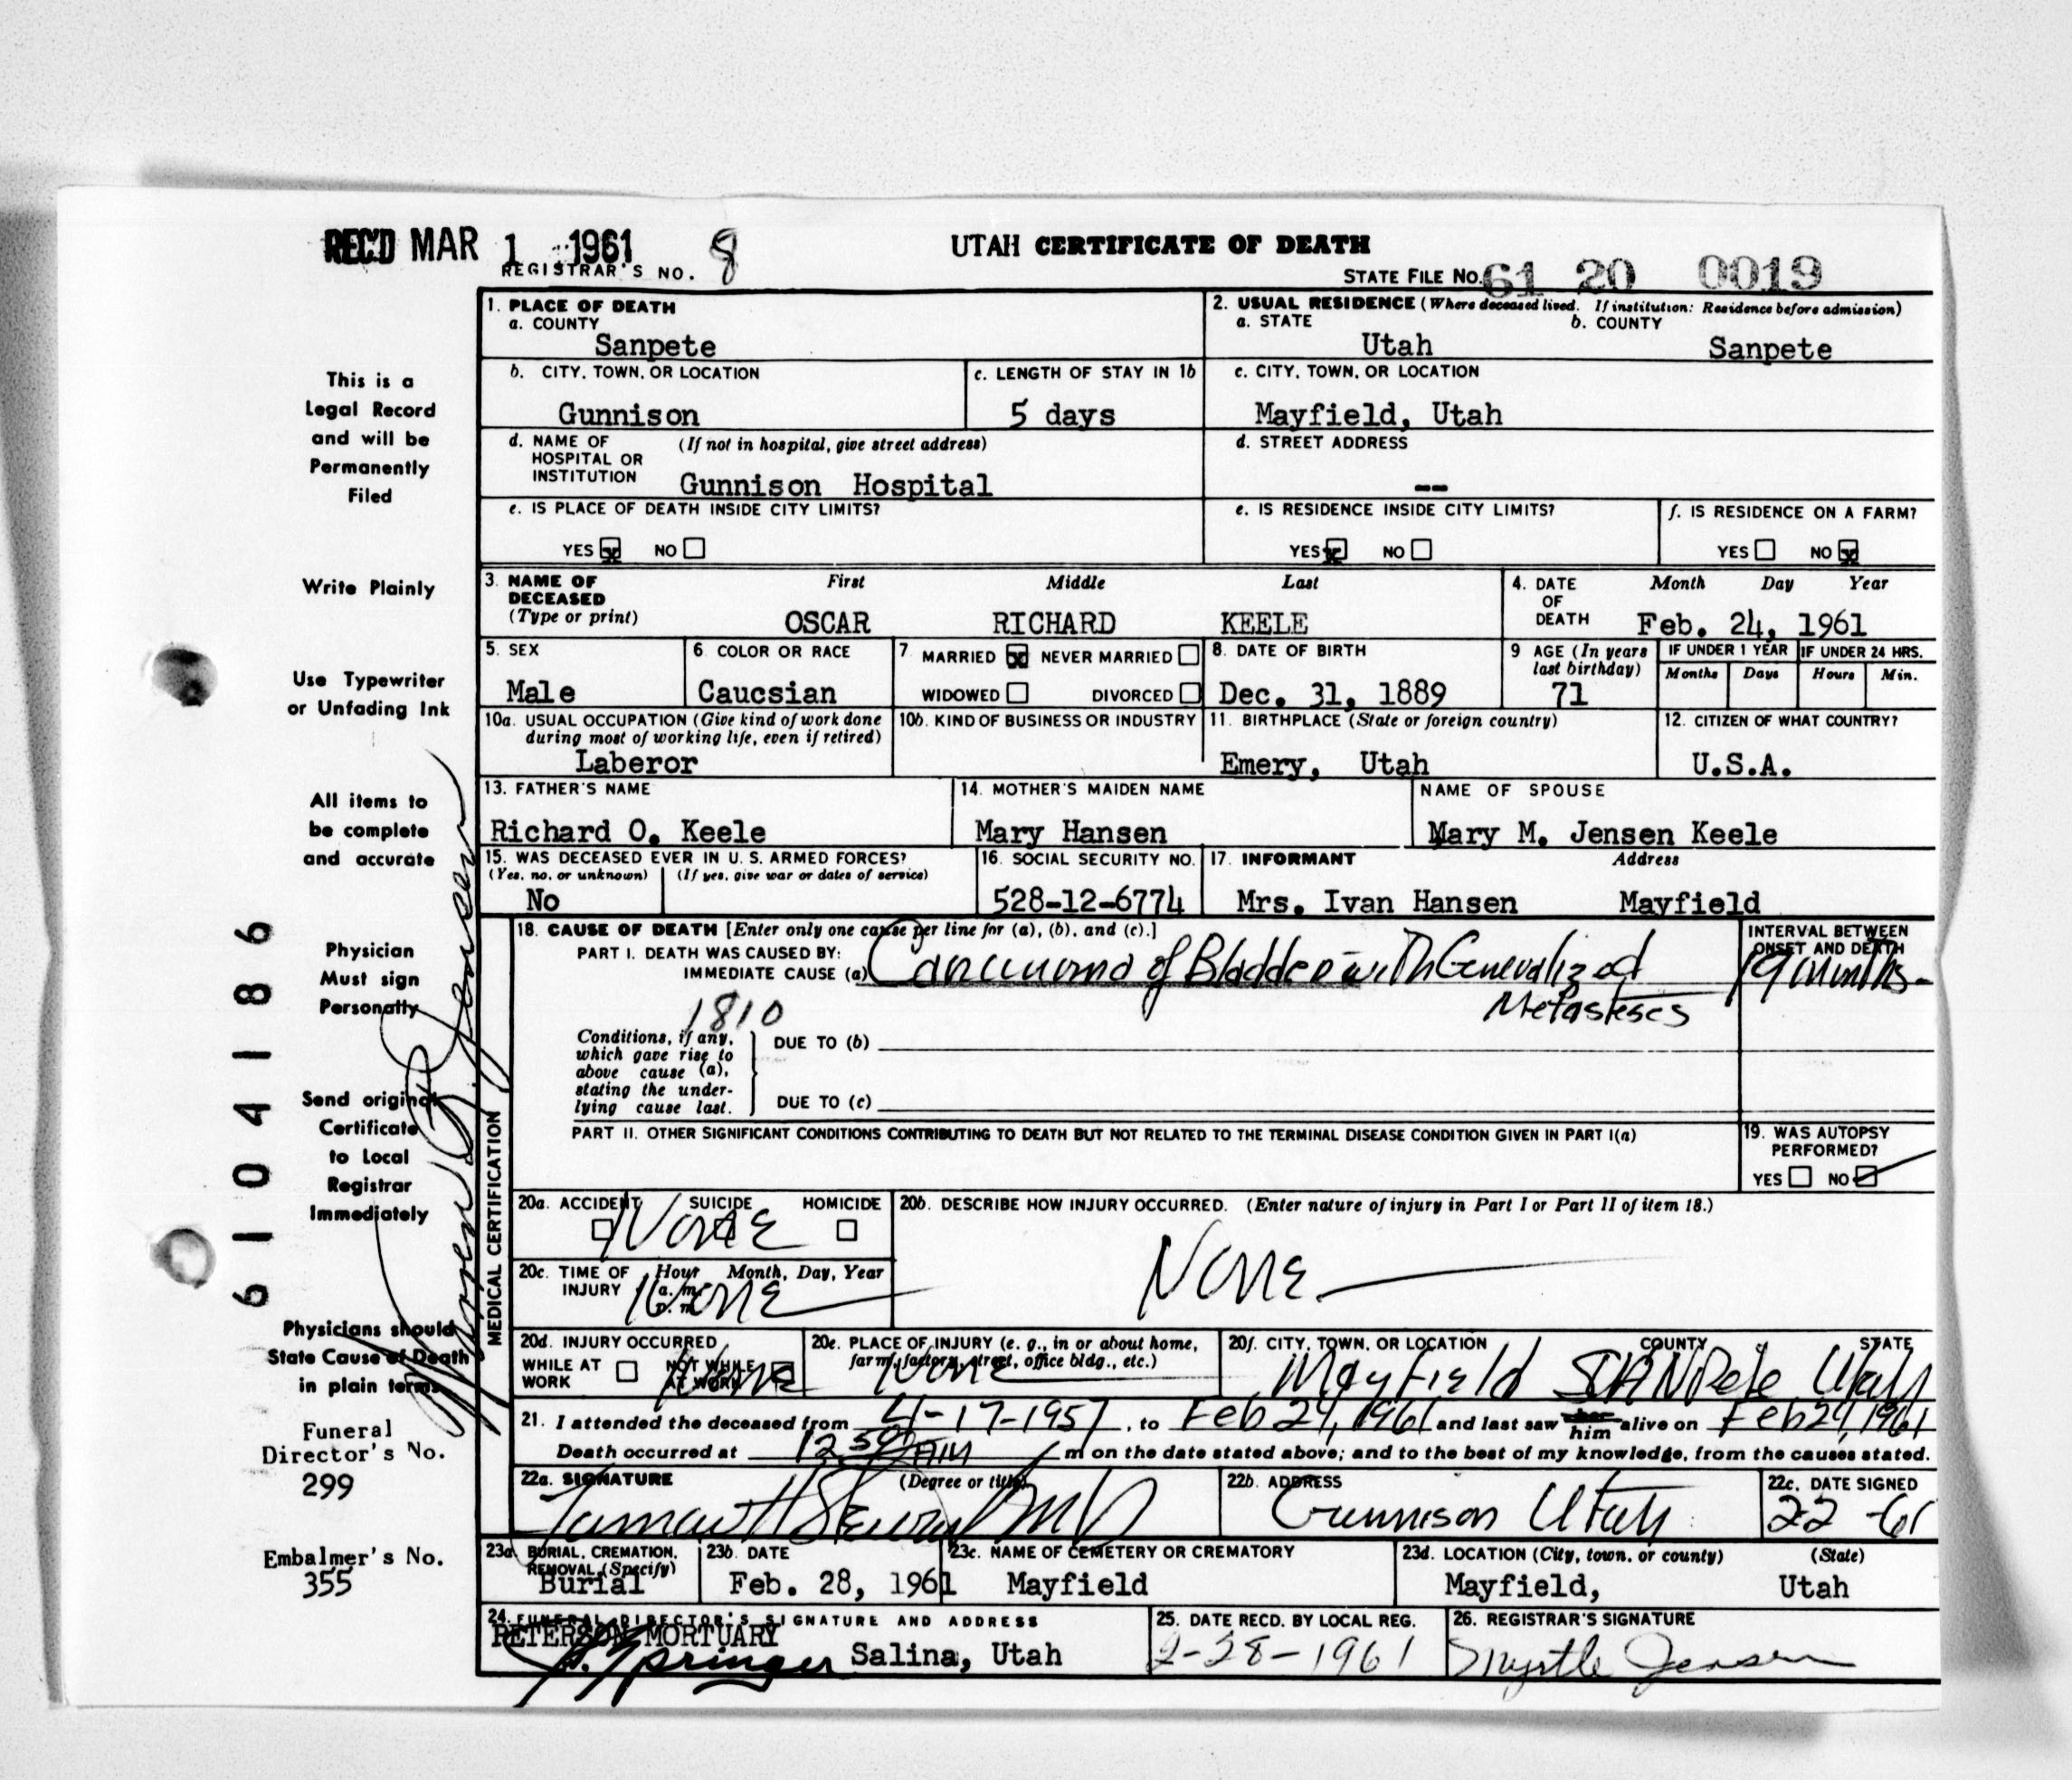 REC'D MAR 1 1961
REGISTRAR'S NO. 8
UTAH CERTIFICATE OF DEATH
STATE FILE NO. 61 20 0019
This is a
Legal Record
and will be
Permanently
Filed
Write Plainly
Use Typewriter
or Unfading Ink
All items to
be complete
and accurate
Physician
Must sign
Personally
Send original
Certificate
to Local
Registrar
Immediately
Physicians should
State Cause of Death
in plain terms
Funeral
Director's No.
299
Embalmer's No.
355
6104186
1. PLACE OF DEATH
a. COUNTY
Sanpete
2. USUAL RESIDENCE (Where deceased lived. If institution: Residence before admission)
a. STATE b. COUNTY
Utah Sanpete
b. CITY, TOWN, OR LOCATION
Gunnison
c. LENGTH OF STAY IN 1b
5 days
c. CITY, TOWN, OR LOCATION
Mayfield, Utah
d. NAME OF (If not in hospital, give street address)
HOSPITAL OR
INSTITUTION Gunnison Hospital
d. STREET ADDRESS
--
e. IS PLACE OF DEATH INSIDE CITY LIMITS?
YES x NO
e. IS RESIDENCE INSIDE CITY LIMITS?
YES x NO
f. IS RESIDENCE ON A FARM?
YES NO x
3. NAME OF First Middle Last
DECEASED
(Type or print) OSCAR RICHARD KEELE
4. DATE Month Day Year
OF
DEATH Feb. 24, 1961
5. SEX
Male
6 COLOR OR RACE
Caucsian
7 MARRIED x NEVER MARRIED
WIDOWED DIVORCED
8. DATE OF BIRTH
Dec. 31, 1889
9 AGE (In years
last birthday)
71
IF UNDER 1 YEAR
Months Days
IF UNDER 24 HRS.
Hours Min.
10a. USUAL OCCUPATION (Give kind of work done
during most of working life, even if retired)
Laberor
10b. KIND OF BUSINESS OR INDUSTRY
11. BIRTHPLACE (State or foreign country)
Emery, Utah
12. CITIZEN OF WHAT COUNTRY?
U.S.A.
13. FATHER'S NAME
Richard O. Keele
14. MOTHER'S MAIDEN NAME
Mary Hansen
NAME OF SPOUSE
Mary M. Jensen Keele
15. WAS DECEASED EVER IN U. S. ARMED FORCES?
(Yes, no, or unknown) (If yes, give war or dates of service)
No
16. SOCIAL SECURITY NO.
528-12-6774
17. INFORMANT Address
Mrs. Ivan Hansen Mayfield
MEDICAL CERTIFICATION
18. CAUSE OF DEATH [Enter only one cause per line for (a), (b), and (c).]
PART I. DEATH WAS CAUSED BY:
IMMEDIATE CAUSE (a) Carcinoma of Bladder with Generalized
Metasteses
INTERVAL BETWEEN
ONSET AND DEATH
19 months
1810
Conditions, if any,
which gave rise to
above cause (a),
stating the under-
lying cause last.
DUE TO (b)
DUE TO (c)
PART II. OTHER SIGNIFICANT CONDITIONS CONTRIBUTING TO DEATH BUT NOT RELATED TO THE TERMINAL DISEASE CONDITION GIVEN IN PART I(a)
19. WAS AUTOPSY
PERFORMED?
YES NO
20a. ACCIDENT SUICIDE HOMICIDE
None
20b. DESCRIBE HOW INJURY OCCURRED. (Enter nature of injury in Part I or Part II of item 18.)
None
20c. TIME OF Hour Month, Day, Year
INJURY a. m.
p. m.
None
20d. INJURY OCCURRED
WHILE AT WORK NOT WHILE AT WORK
None
20e. PLACE OF INJURY (e. g., in or about home,
farm, factory, street, office bldg., etc.)
None
20f. CITY, TOWN, OR LOCATION COUNTY STATE
Mayfield SANPete Utah
21. I attended the deceased from 4-17-1957, to Feb 24, 1961 and last saw her him alive on Feb 24, 1961
Death occurred at 12 50 AM m on the date stated above; and to the best of my knowledge, from the causes stated.
22a. SIGNATURE (Degree or title)
MD
22b. ADDRESS
Gunnison Utah
22c. DATE SIGNED
22 -61
23a. BURIAL, CREMATION,
REMOVAL (Specify)
Burial
23b. DATE
Feb. 28, 1961
23c. NAME OF CEMETERY OR CREMATORY
Mayfield
23d. LOCATION (City, town, or county) (State)
Mayfield, Utah
24. FUNERAL DIRECTOR'S SIGNATURE AND ADDRESS
PETERSON MORTUARY
Springer Salina, Utah
25. DATE RECD. BY LOCAL REG.
2-28-1961
26. REGISTRAR'S SIGNATURE
Myrtle Jensen